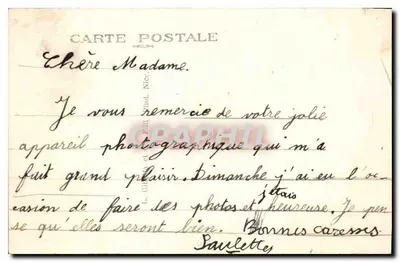 CARTE POSTALE
Chère Madame.
Je vous remercie de votre jolie
appareil photographique qui m'a
fait grand plaisir. Dimanche j'ai eu l'oc-
casion de faire des photos et j'étais heureuse. Je pen
se qu'elles seront bien. Bonnes caresses
Paulette